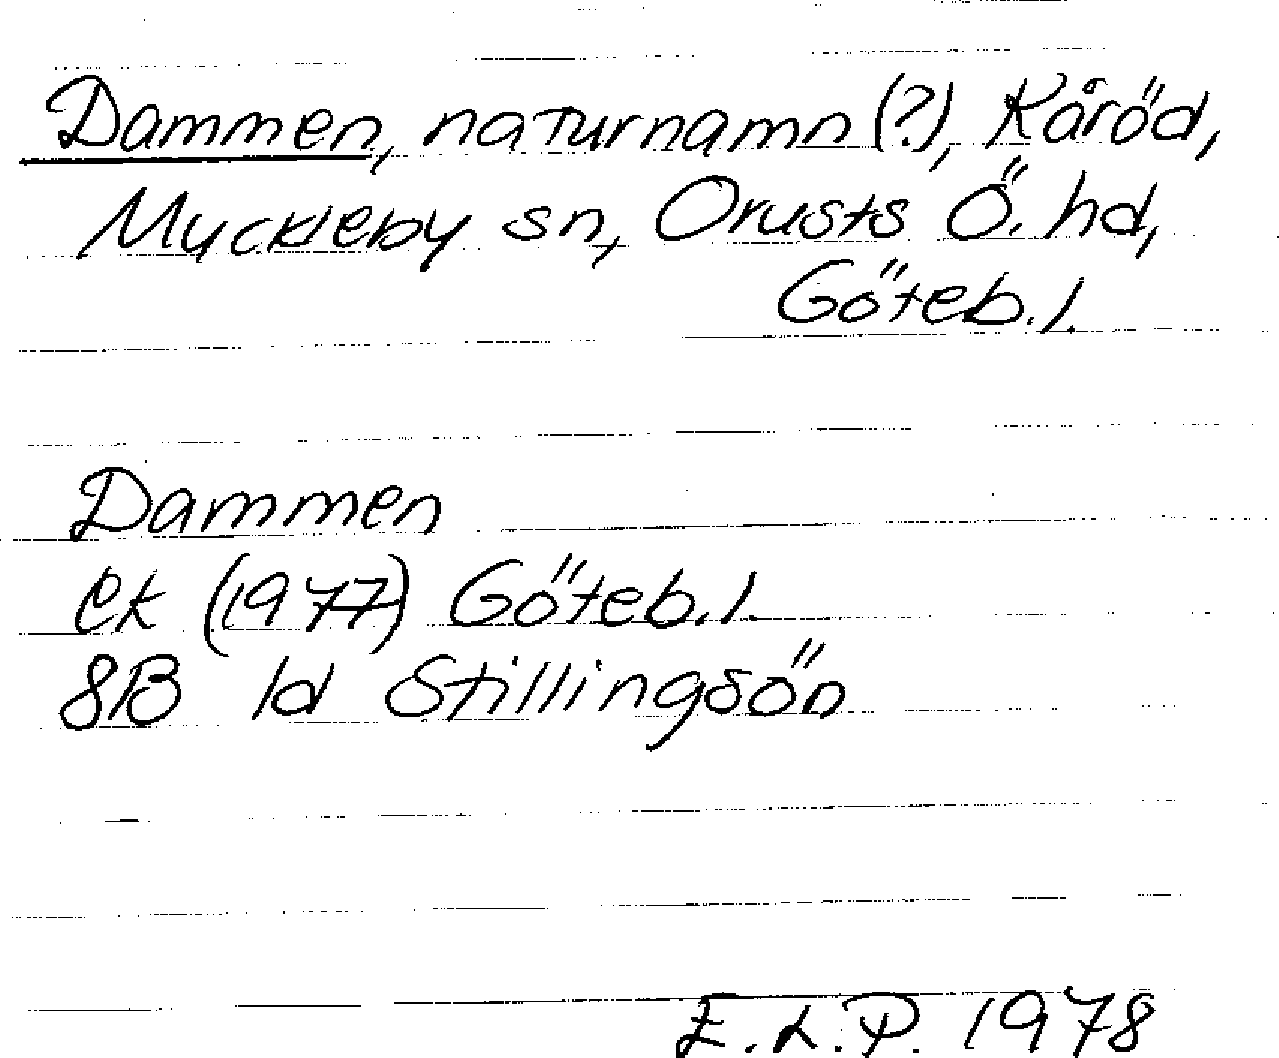 Dammen, naturnamn (?), Kåröd,
Myckleby sn, Orusts Ö. hd,
Göteb. l.
Dammen
ek (1977) Göteb. l.
8B 1d Stillingsön
E.L.P. 1978